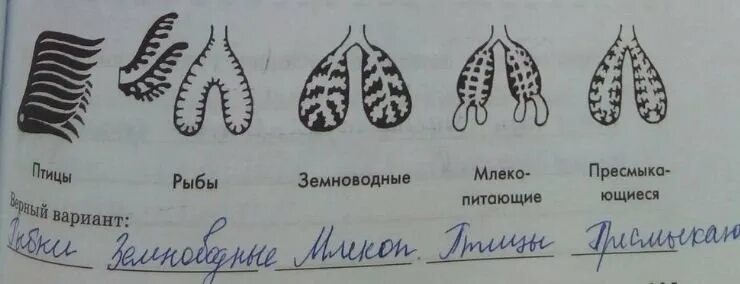 Птицы Рыбы Земноводные Млеко- Пресмыка-
питающие ющиеся
Верный вариант:
Рыбы Земноводные Млекоп. Птицы Пресмыкаю